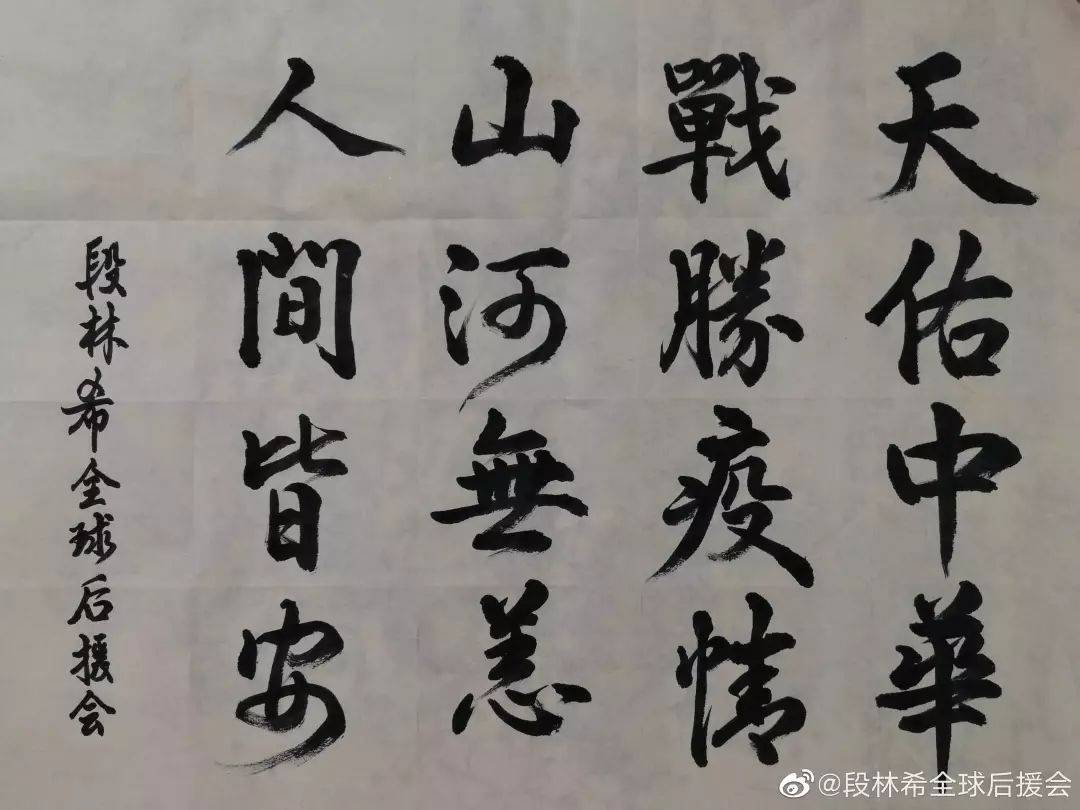 天佑中華
戰勝疫情
山河無恙
人間皆安
段林希全球后援会
@段林希全球后援会